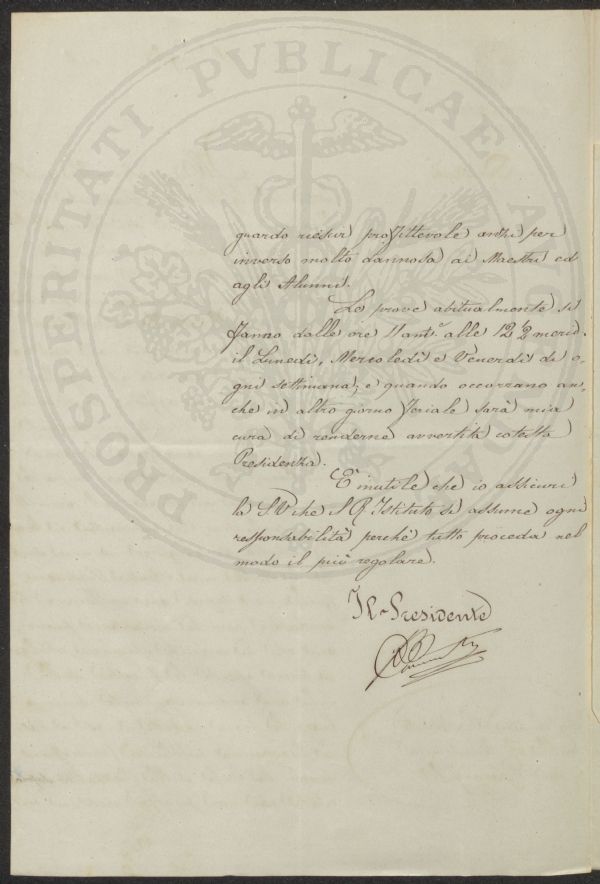 PROSPERITATI PVBLICAE
guardo riescir proffittevole anzi per
inverso molto dannosa ai Maestri ed
agli Alunni.
Le prove abitualmente si
fanno dalle ore 11 ant.e alle 12 2 merid.
il Lunedì, Mercoledì e Venerdì di o-
gni settimana; e quando occorrano an-
che in altro giorno feriale sarà mia
cura di renderne avvertita cotesta
Presidenza.
È inutile che io assicuri
la S.V. che I R. Istituto si assume ogni
responsabilità perché tutto proceda nel
modo il più regolare.
Il Presidente